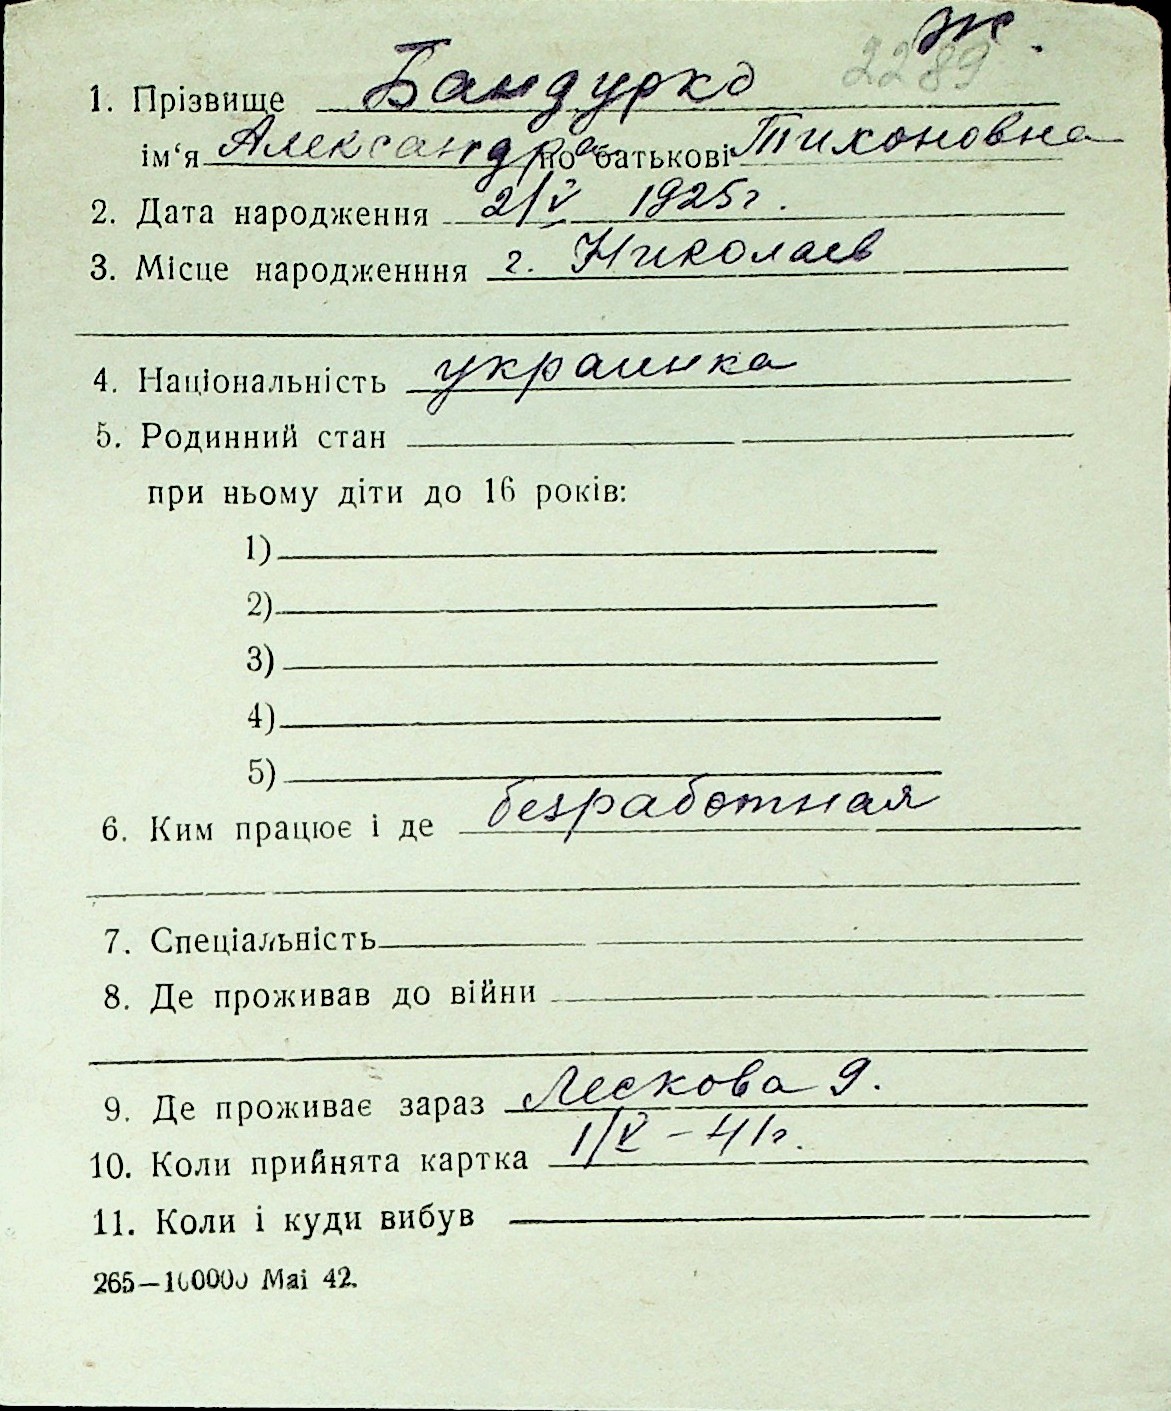 Ж.
2289
1. Прізвище Бандурко
ім‘я Александра по батькові Тихоновна
2. Дата народження 2/V 1925г.
3. Місце народженння г. Николаев
4. Національність украинка
5. Родинний стан
при ньому діти до 16 років:
1)
2)
3)
4)
5)
6. Ким працює і де безработная
7. Спеціальність
8. Де проживав до війни
9. Де проживає зараз Лескова 9.
10. Коли прийнята картка 1/V – 41г.
11. Коли і куди вибув
265—100000 Mai 42.